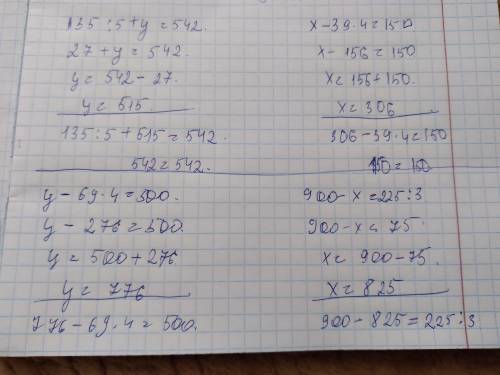 135:5+y=542.
27+y=542.
y=542-27.
y=515.
135:5+515=542.
542=542.
x-39·4=150
x-156=150
x=156+150.
x=306
306-39·4=150
150=150
y-69·4=500.
y-276=500.
y=500+276
y=776
776-69·4=500.
900-x=225:3
900-x=75
x=900-75.
x=825
900-825=225:3